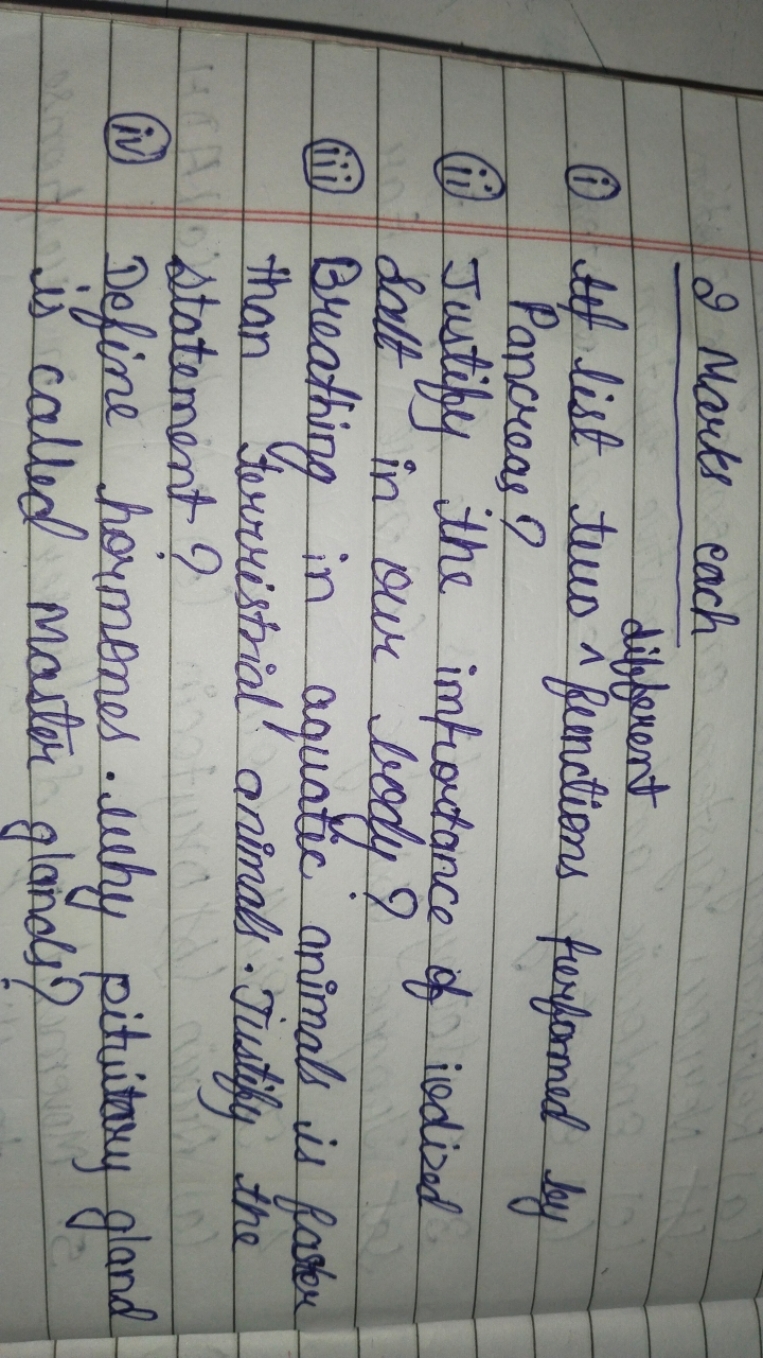 2 Marks each
different
(i) list two ^ functions performed by
Pancreas?
(ii) Justify the importance of iodized
Salt in our body?
(iii) Breathing in aquatic animals is faster
than terristrial animals. Justify the
statement?
(iv) Define hormones. Why pituitary gland
is called Master glands?